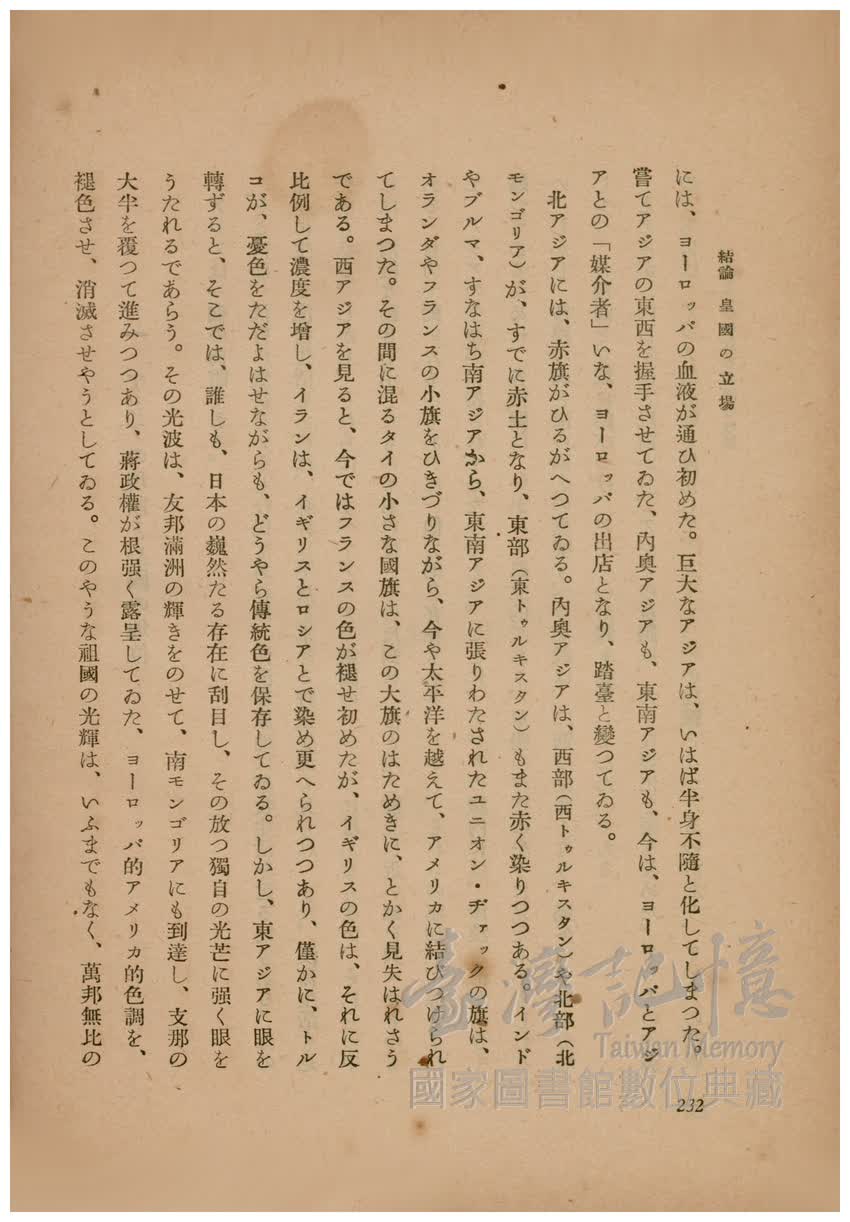 結論 皇國の立場
には、ヨーロッパの血液が通ひ初めた。巨大なアジアは、いはば半身不隨と化してしまつた。
嘗てアジアの東西を握手させてゐた、內奧アジアも、東南アジアも、今は、ヨーロッパとアジ
アとの「媒介者」いな、ヨーロッパの出店となり、踏臺と變つてゐる。
北アジアには、赤旗がひるがへつてゐる。內奧アジアは、西部（西トゥルキスタン）や北部（北
モンゴリア）が、すでに赤土となり、東部（東トゥルキスタン）もまた赤く染りつつある。インド
やブルマ、すなはち南アジアから、東南アジアに張りわたされたユニオン・ヂァックの旗は、
オランダやフランスの小旗をひきづりながら、今や太平洋を越えて、アメリカに結びつけられ
てしまつた。その間に混るタイの小さな國旗は、この大旗のはためきに、とかく見失はれさう
である。西アジアを見ると、今ではフランスの色が褪せ初めたが、イギリスの色は、それに反
比例して濃度を增し、イランは、イギリスとロシアとで染め更へられつつあり、僅かに、トル
コが、憂色をただよはせながらも、どうやら傳統色を保存してゐる。しかし、東アジアに眼を
轉ずると、そこでは、誰しも、日本の巍然たる存在に刮目し、その放つ獨自の光芒に强く眼を
うたれるであらう。その光波は、友邦滿洲の輝きをのせて、南モンゴリアにも到達し、支那の
大半を覆つて進みつつあり、蔣政權が根强く露呈してゐた、ヨーロッパ的アメリカ的色調を、
褪色させ、消滅させやうとしてゐる。このやうな祖國の光輝は、いふまでもなく、萬邦無比の
232
臺灣記憶
Taiwan Memory
國家圖書館數位典藏